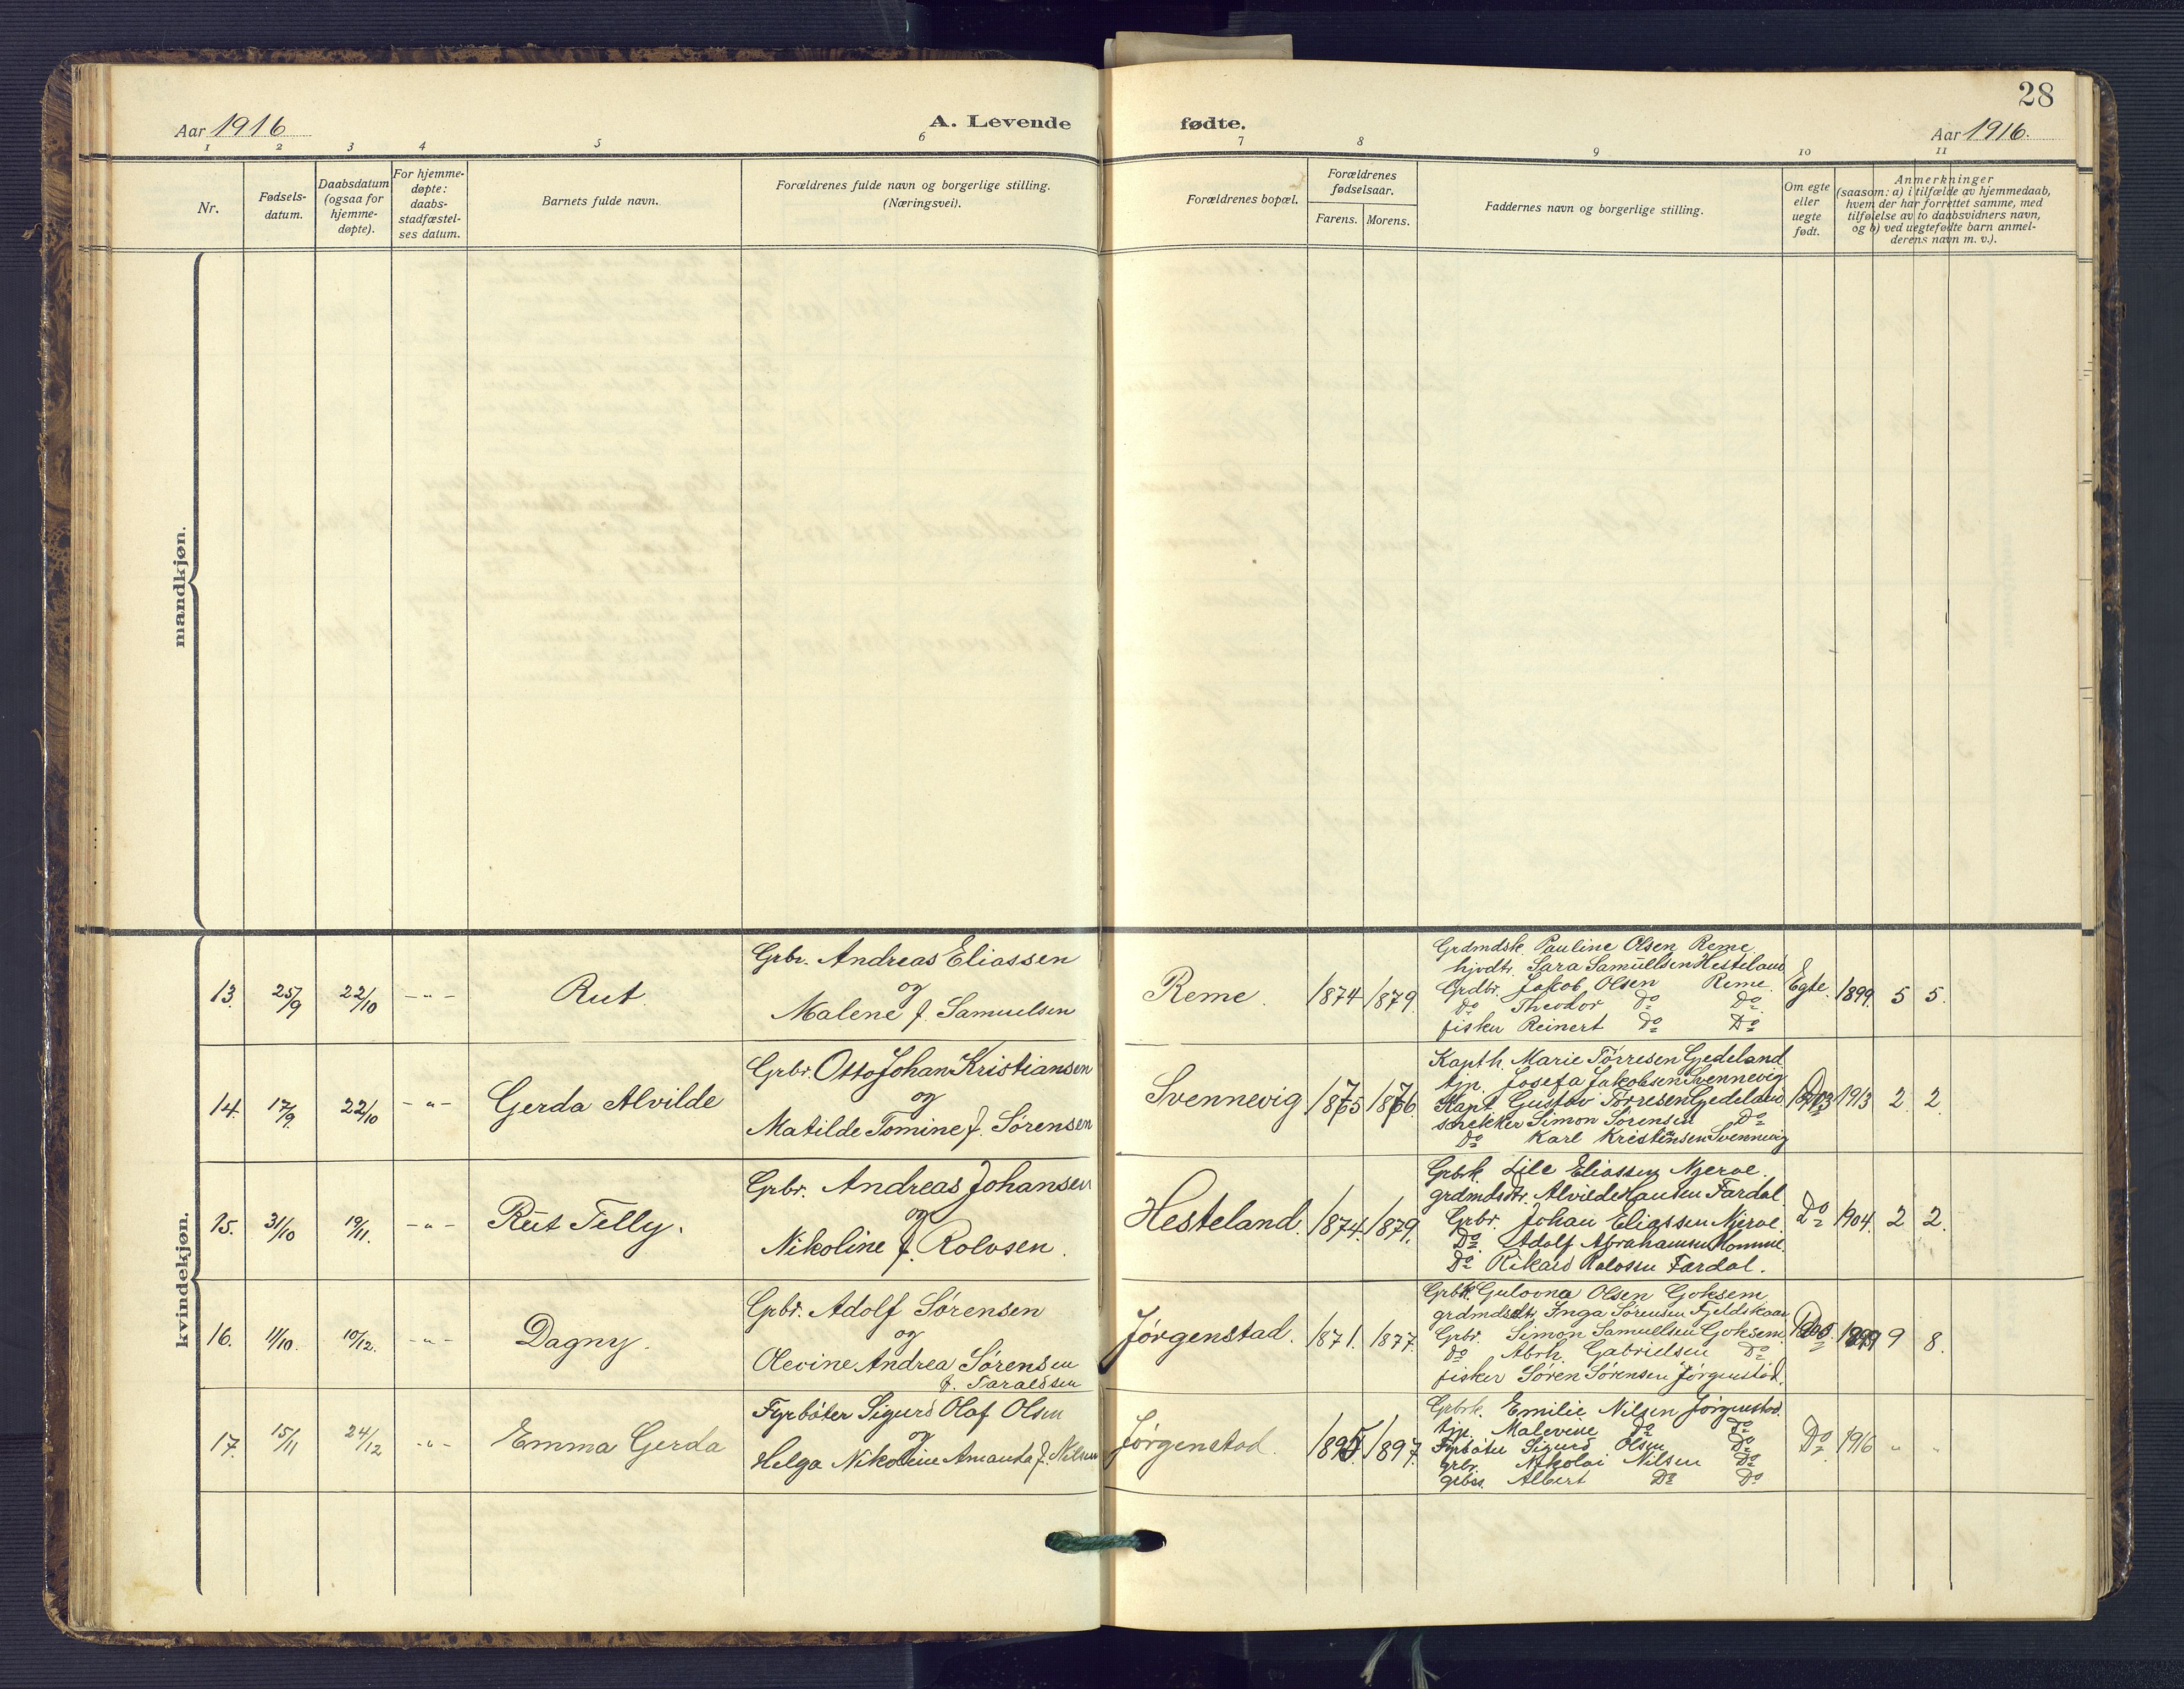 28
Aar 1916
A. Levende
fødte.
Aar 1916.
1 2 3 4 5 6 7 8 9 10 11
Nr.
Fødsels-
datum.
Daabsdatum
(ogsaa for
hjemme-
døpte).
For hjemme-
døpte:
daabs-
stadfæstel-
ses datum.
Barnets fulde navn.
Forældrenes fulde navn og borgerlige stilling.
(Næringsvei).
Forældrenes bopæl.
Forældrenes
fødselsaar.
Farens. Morens.
Faddernes navn og borgerlige stilling.
Om egte
eller
uegte
født.
Anmerkninger
(saasom: a) i tilfælde av hjemmedaab,
hvem der har forrettet samme, med
tilføielse av to daabsvidners navn,
og b) ved uegtefødte barn anmel-
derens navn m. v.).
mandkjøn.
kvindekjøn.
13. 25/9 22/10 - " - Rut.
Grbr. Andreas Eliassen
og
Malene f. Samuelsen
Reme. 1874 1879.
Grdmdsk. Pauline Olsen Reme
hjvdtr. Sara Samuelsen Hesteland
Grdbr. Jakob Olsen Reme.
do Theodor do Do
fisker Reinert do Do
Egte. 1899. 5 5.
14. 17/9. 22/10 - " - Gerda Alvilde
Grbr. Otto Johan Kristiansen
og
Matilde Tomine f. Sørensen
Svennevig 1875 1876.
Kapth. Marie Tørresen Gjedeland
tjp. Josefa Jakobsen Svennevig
Kapt. Gustav Tørresen Gjedeland
Simon Sørensen Do
Do Karl Kristensen Svennevig
1913 2. 2.
15. 31/10 19/11. - " - Rut Telly.
Grbr. Andreas Johansen
og
Nikoline f. Rolosen.
Hesteland. 1874. 1879.
Grbrk. Lile Eliassen Njerve.
grdmdsdtr. Alvilde Hansen Fardal
Grbr. Johan Eliassen Njerve.
Do. Adolf Abrahamsen Homme.
Do Rikard Rolosen Fardal.
Do 1904. 2 2.
16. 11/10. 10/12. - " - Dagny.
Grbr. Adolf Sørensen
og
Olevine Andrea Sørensen
f. Taraldsen
Jørgenstad. 1871. 1877.
Grbrk. Gulovna Olsen Goksem
grdmdsdtr. Inga Sørensen Fjeldskaar
Grbr. Simon Samuelsen Goksem
do Abrh. Gabrielsen Do
fisker Søren Sørensen Jørgenstad.
9 8.
17. 15/11 24/12 - " - Emma Gerda
Fyrbøter Sigurd Olaf Olsen
og
Helga Nikoline Amanda f. Nilsen
Jørgenstad. 1895. 1897.
Grbrk. Emilie Nilsen Jørgenstad.
tjp. Malevine Do Do
Fyrbøter Sigurd Olsen Do
grbr. Nikolai Nilsen Do
grbss. Albert Do Do
Do. 1916 " "